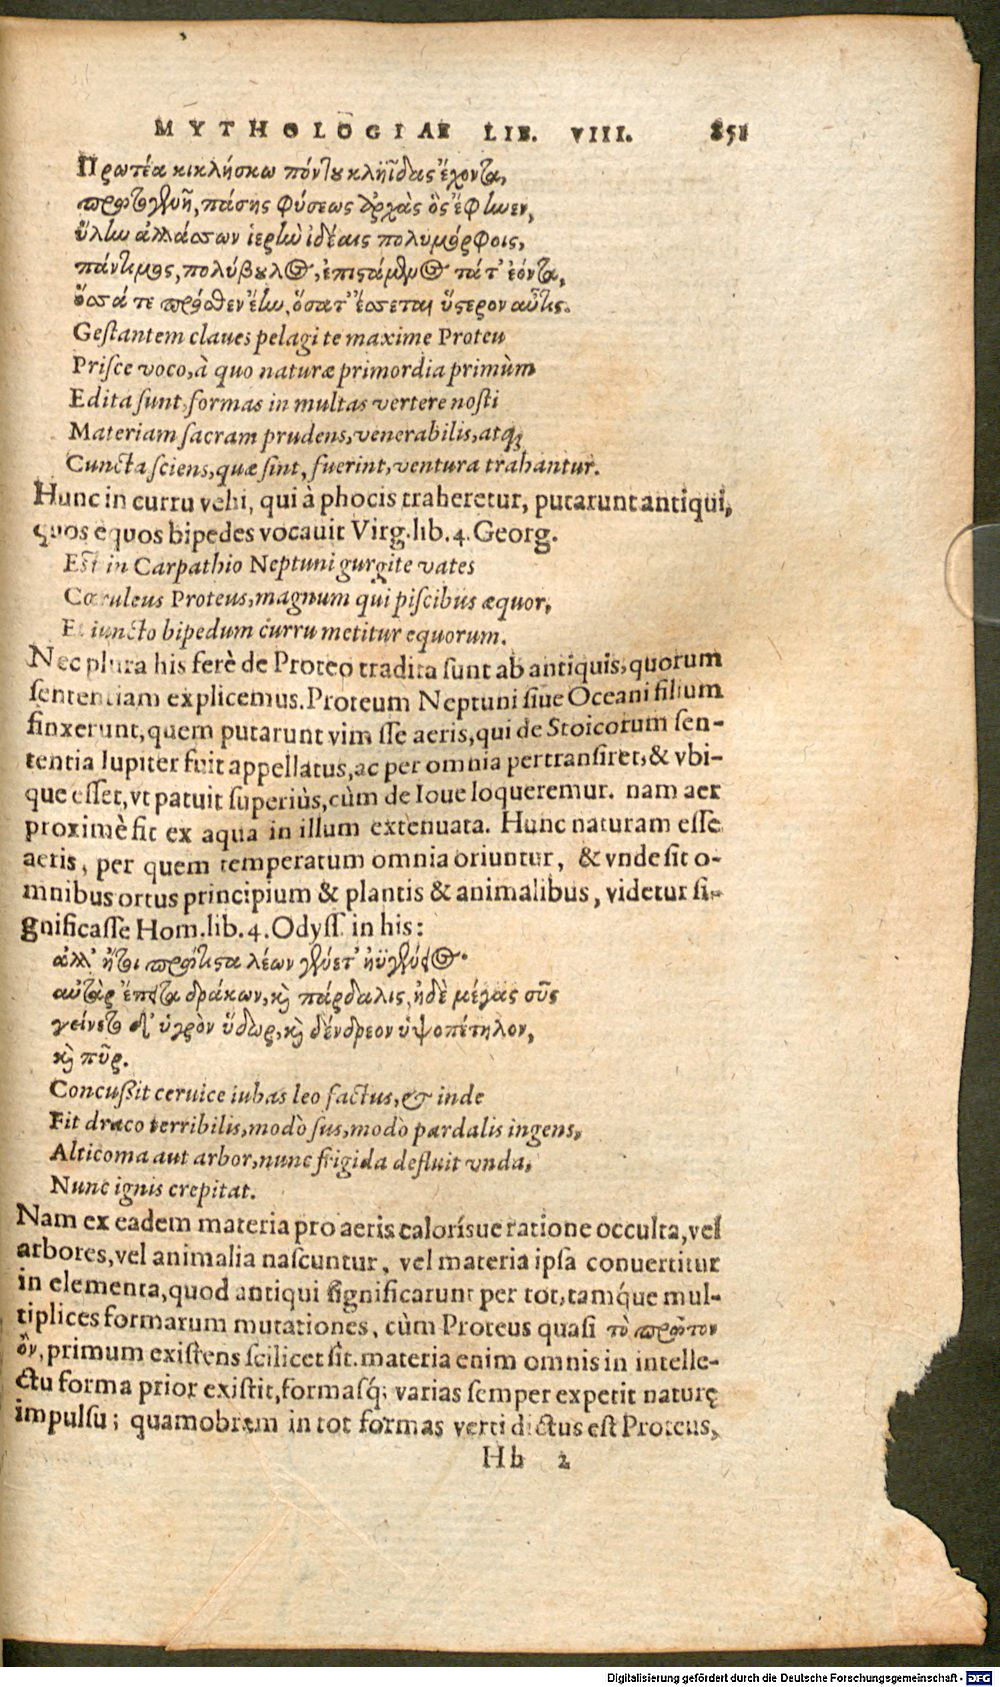 MYTHOLOGIAE LIB. VIII. 851
Πρωτέα κικλήσκω πόντου κληῗδας ἔχοντα,
πρωτογενῆ, πάσης φύσεως ἀρχὰς ὃς ἔφηνεν,
ὕλην ἀλλάσσων ἱερὴν ἰδέαις πολυμόρφοις,
πάντιμος, πολύβουλος, ἐπιστάμενος τά τ' ἐόντα,
ὅσσά τε πρόσθεν ἔην, ὅσα τ' ἔσσεται ὕστερον αὖτις.
Gestantem claues pelagi te maxime Proteu
Prisce voco, à quo naturæ primordia primùm
Edita sunt, formas in multas vertere nosti
Materiam sacram prudens, venerabilis, atq;
Cuncta sciens, quæ sint, fuerint, ventura trahantur.
Hunc in curru vehi, qui à phocis traheretur, putarunt antiqui,
quos equos bipedes vocauit Virg. lib. 4. Georg.
Est in Carpathio Neptuni gurgite vates
Cœruleus Proteus, magnum qui piscibus æquor,
Et iuncto bipedum curru metitur equorum.
Nec plura his ferè de Proteo tradita sunt ab antiquis, quorum
sententiam explicemus. Proteum Neptuni siue Oceani filium
finxerunt, quem putarunt vim esse aeris, qui de Stoicorum sen-
tentia Iupiter fuit appellatus, ac per omnia pertransiret, & vbi-
que esset, vt patuit superiùs, cùm de Ioue loqueremur. nam aer
proximè fit ex aqua in illum extenuata. Hunc naturam esse
aeris, per quem temperatum omnia oriuntur, & vnde sit o-
mnibus ortus principium & plantis & animalibus, videtur si-
gnificasse Hom. lib. 4. Odyss. in his:
ἀλλ' ἤτοι πρώτιστα λέων γένετ' ἠϋγένειος.
αὐτὰρ ἔπειτα δράκων, καὶ πάρδαλις, ἠδὲ μέγας σῦς
γείνετο δ' ὑγρὸν ὕδωρ, καὶ δένδρεον ὑψοπέτηλον,
καὶ πῦρ.
Concußit ceruice iubas leo factus, & inde
Fit draco terribilis, modò sus, modò pardalis ingens,
Alticoma aut arbor, nunc frigida defluit vnda,
Nunc ignis crepitat.
Nam ex eadem materia pro aeris calorísue ratione occulta, vel
arbores, vel animalia nascuntur, vel materia ipsa conuertitur
in elementa, quod antiqui significarunt per tot, tamq́ue mul-
tiplices formarum mutationes, cùm Proteus quasi τὸ πρῶτον
ὂν, primum existens scilicet sit. materia enim omnis in intelle-
ctu forma prior existit, formasq́; varias semper expetit naturę
impulsu; quamobrem in tot formas verti dictus est Proteus,
Hh 2
Digitalisierung gefördert durch die Deutsche Forschungsgemeinschaft - DFG